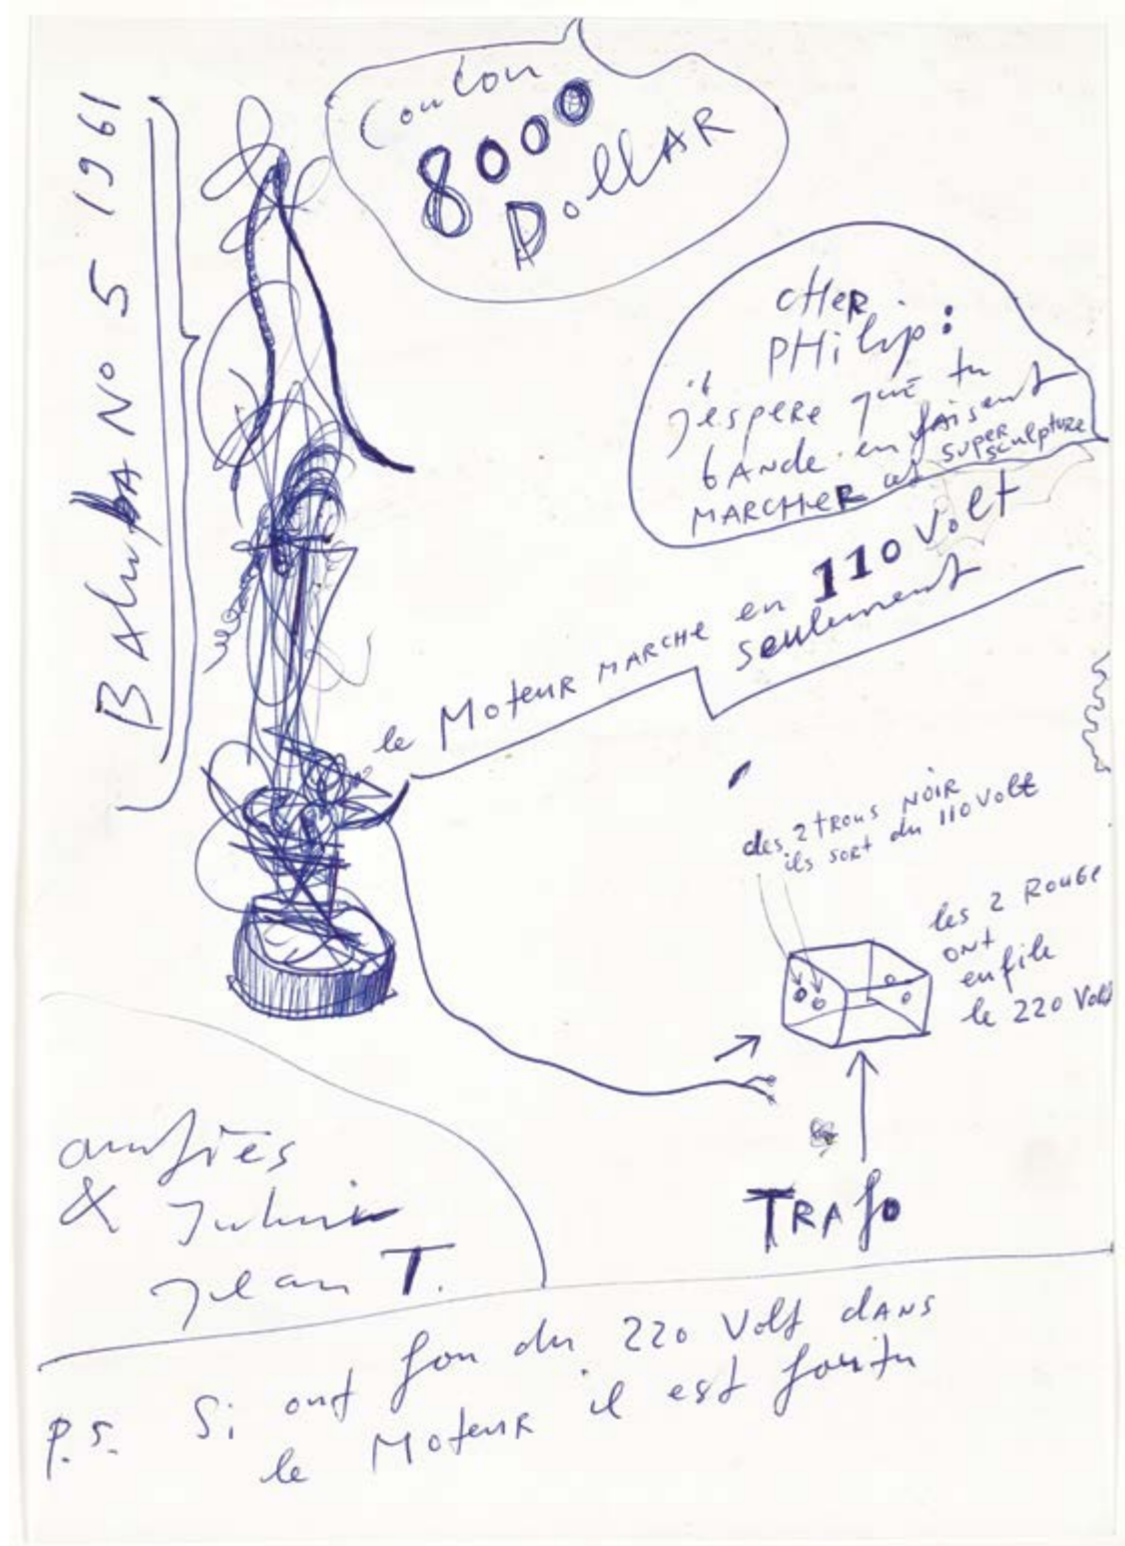 BAlubA No 5 1961
8000
DollAR
CHeR
PHilip:
j'espeRe que tu
bAnde en fAisent
MARCHeR cet SUPER sculptuRe
le MoteuR MARCHe en 110 Volt
seulement
des 2 tRous NOIR
ils soRt du 110 Volt
les 2 Rouge
ont
enfile
le 220 Volt
TRAfo
amities
&
jean T.
P.S. Si ont fou du 220 Volt dANS
le MoteuR il est foutu